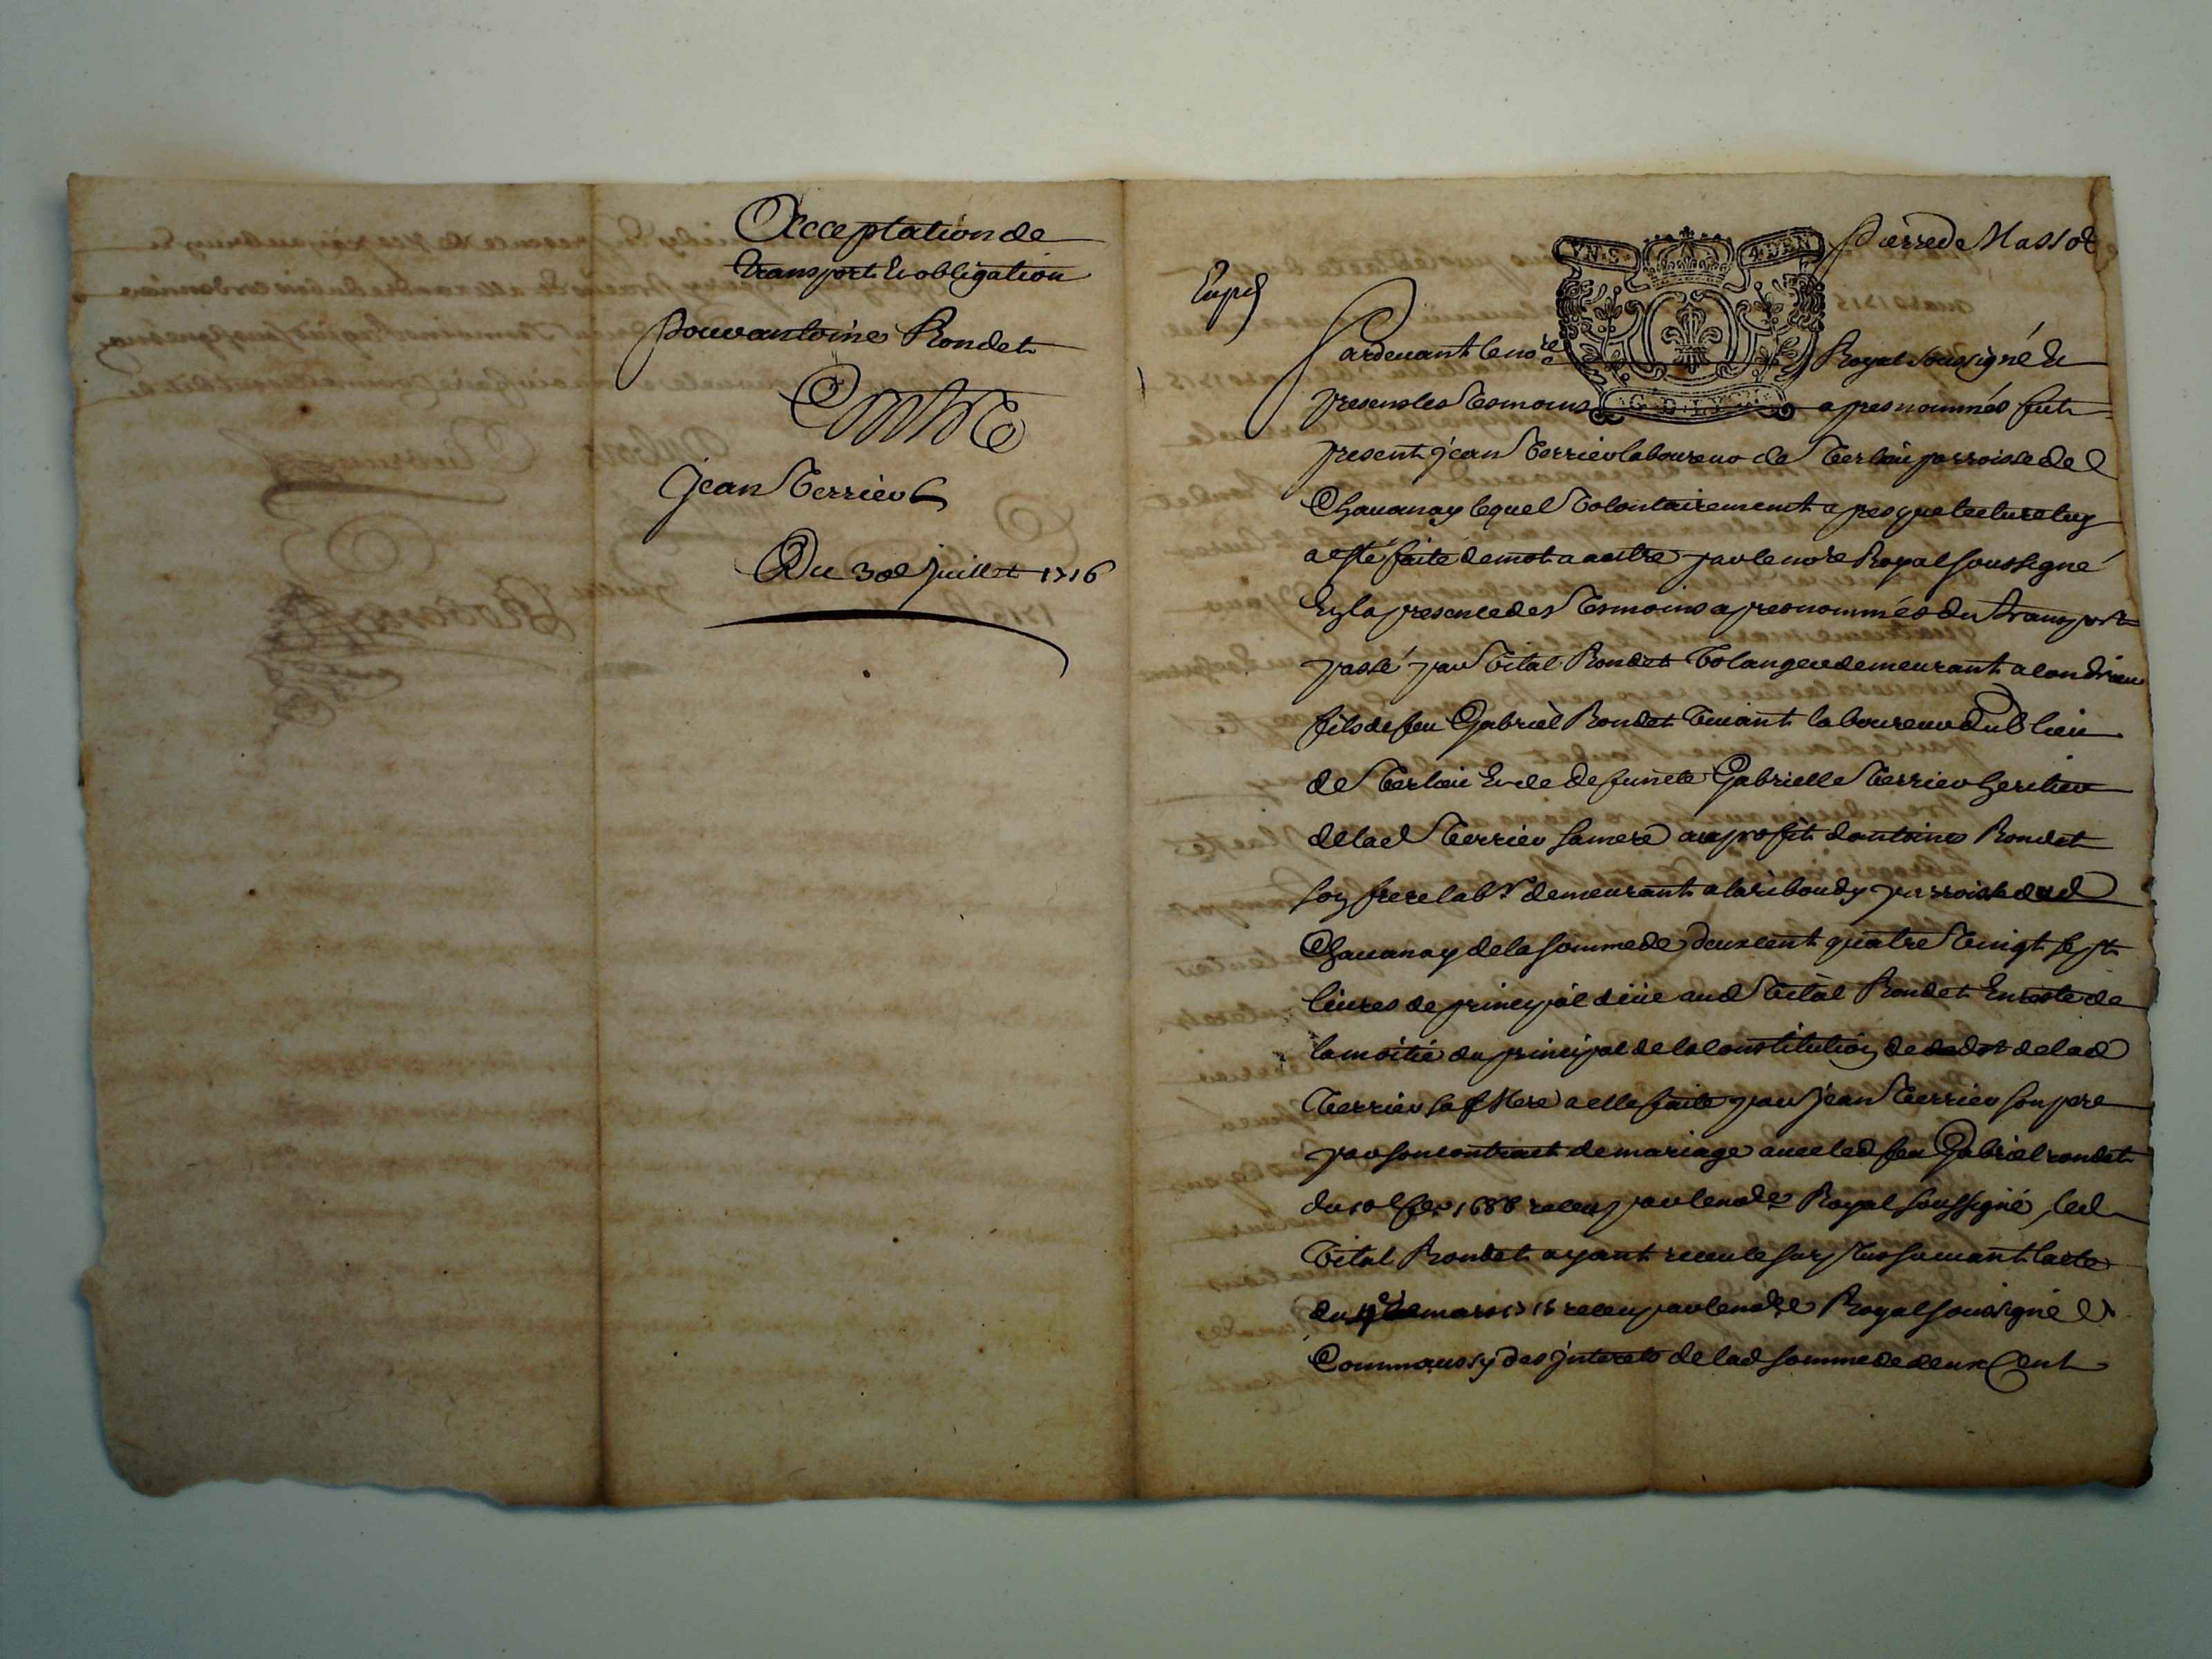 Acceptation de
transport Et obligation
pour antoine Rondet
Contre
Jean Verrier
Du 30e Juillet 1716
Pierre de Massot
VN.S. 4.DEN
Expéd
Pardevant le nore Royal soussigné Et
presens les tesmoins apres nommés fut
present jean Verrier laboureur de Verlieu parroisse de
Chauanay lequel Volontairement apres que lecture luy
a esté faite de mot a autre par le nore Royal soussigné
En la presence des tesmoins apres nommés du transport
passé par Vital Rondet Volangeur demeurant a Condrieu
fils de feu Gabriel Rondet Viuant laboureur dud lieu
de Verlieu Et de defuncte Gabrielle Verrier heritier
de lad Verrier sa mere au profit d'antoine Rondet
son frere labr demeurant a la ribaudy parroisse dud
Chauanay de la somme de deux cent quatre Vingt sept
liures de principal deüe aud Vital Rondet En reste de
la moitié du principal de la Constitution de dot de lad
Verrier sa Mere a elle faite par jean Verrier son pere
par son contract de mariage auec led feu Gabriel rondet
du 10e 1686 receu par le nore Royal soussigné, led
Vital Rondet ayant receu le surplus suiuant l'acte
du mars 1715 receu par le nore Royal soussigné Et
Comm'aussy des jnterets de lad somme de deux Cent